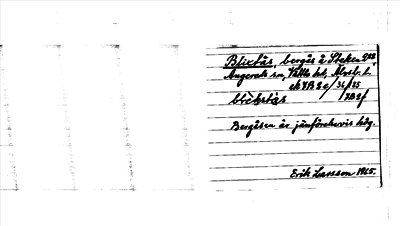 Blixtås, bergås å Steken 2⁹³
Angereds sn, Vättle hd, Älvsb. l.
ek 7B 2 e/34/35
blèkstás /7B2f
Bergåsen är jämförelsevis hög.
Erik Larsson 1965.